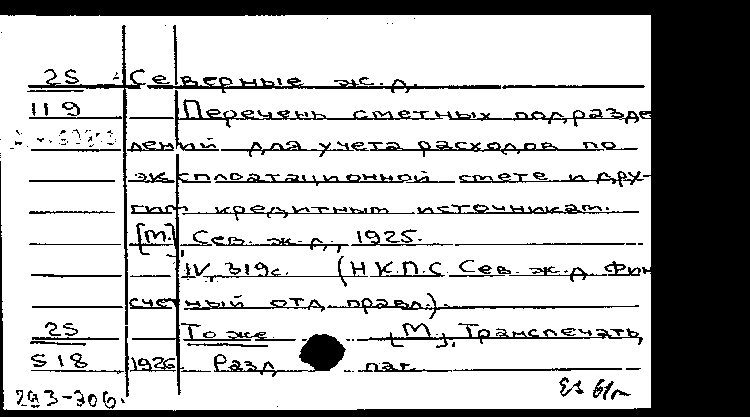 25 Северные ж.д.
119 Перечень сметных подразде
лений для учета расходов по
эксплоатационной смете и дру-
гим кредитным источникам.
[М.], Сев. ж.д., 1925.
IV, 319с. (Н.К.П.С. Сев. ж.д. Фин
счетный отд. правл.).
25 То же [М.], Транспечать,
518 1926. Разд. паг.
293-306.